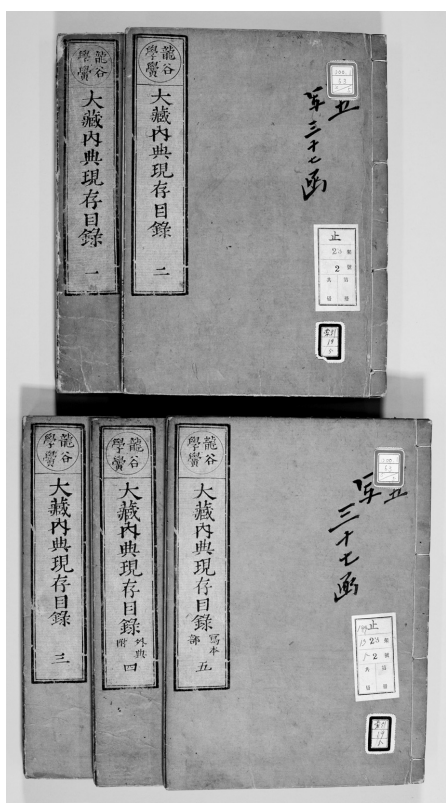 龍谷
學黌
大藏內典現存目錄 一
龍谷
學黌
大藏內典現存目錄 二
五
三十七函
止
2
龍谷
學黌
大藏內典現存目錄 三
龍谷
學黌
大藏內典現存目錄 外典附 四
龍谷
學黌
大藏內典現存目錄 寫本部 五
五
三十七函
止
2